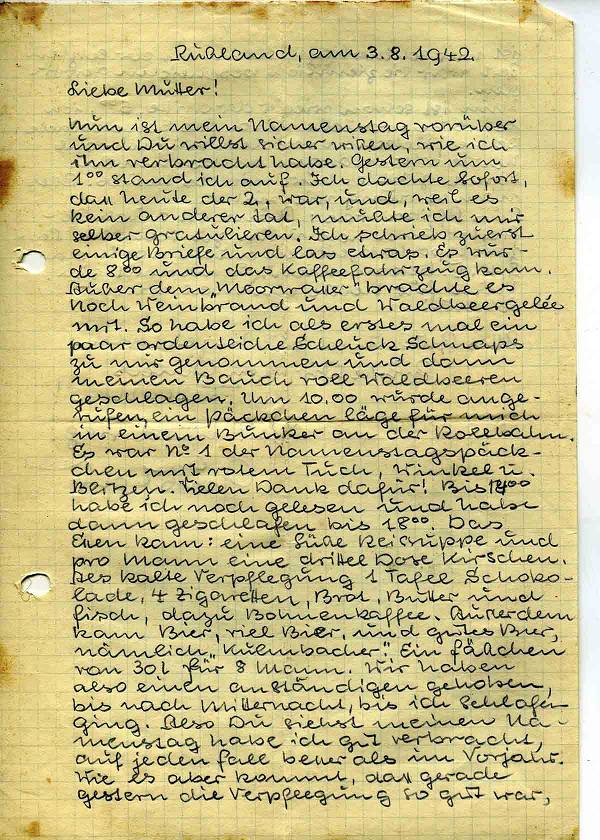 Rußland, am 3.8.1942
Liebe Mutter!
Nun ist mein Namenstag vorüber
und Du willst sicher wißen, wie ich
ihn verbracht habe. Gestern um
1⁰⁰ stand ich auf. Ich dachte sofort,
daß heute der 2. war, und, weil es
kein anderer tat, mußte ich mir
selber gratulieren. Ich schrieb zuerst
einige Briefe und las etwas. Es wur-
de 8⁰⁰ und das Kaffeefahrzeug kam.
Außer dem „Moorwaßer" brachte es
noch Weinbrand und Waldbeergelée
mit. So habe ich als erstes mal ein
paar ordentliche Schluck Schnaps
zu mir genommen und dann
meinen Bauch voll Waldbeeren
geschlagen. Um 10.00 wurde ange-
rufen, ein Päckchen läge für mich
in einem Bunker an der Rollbahn.
Es war No 1 der Namenstagspäck-
chen mit rotem Tuch, Winkel u.
Blitzen. Vielen Dank dafür! Bis 14⁰⁰
habe ich noch gelesen und habe
dann geschlafen bis 18⁰⁰. Das
Eßen kam: eine süße Reissuppe und
pro Mann eine drittel Dose Kirschen.
Als kalte Verpflegung 1 Tafel Schoko-
lade, 4 Zigaretten, Brot, Butter und
Fisch, dazu Bohnenkaffee. Außerdem
kam Bier, viel Bier, und gutes Bier,
nämlich „Kulmbacher". Ein Fäßchen
von 30 l für 8 Mann. Wir haben
also einen anständigen gehoben,
bis nach Mitternacht, bis ich schlafen
ging. Also Du siehst meinen Na-
menstag habe ich gut verbracht,
auf jeden Fall beßer als im Vorjahr.
Wie es aber kommt, daß gerade
gestern die Verpflegung so gut war,